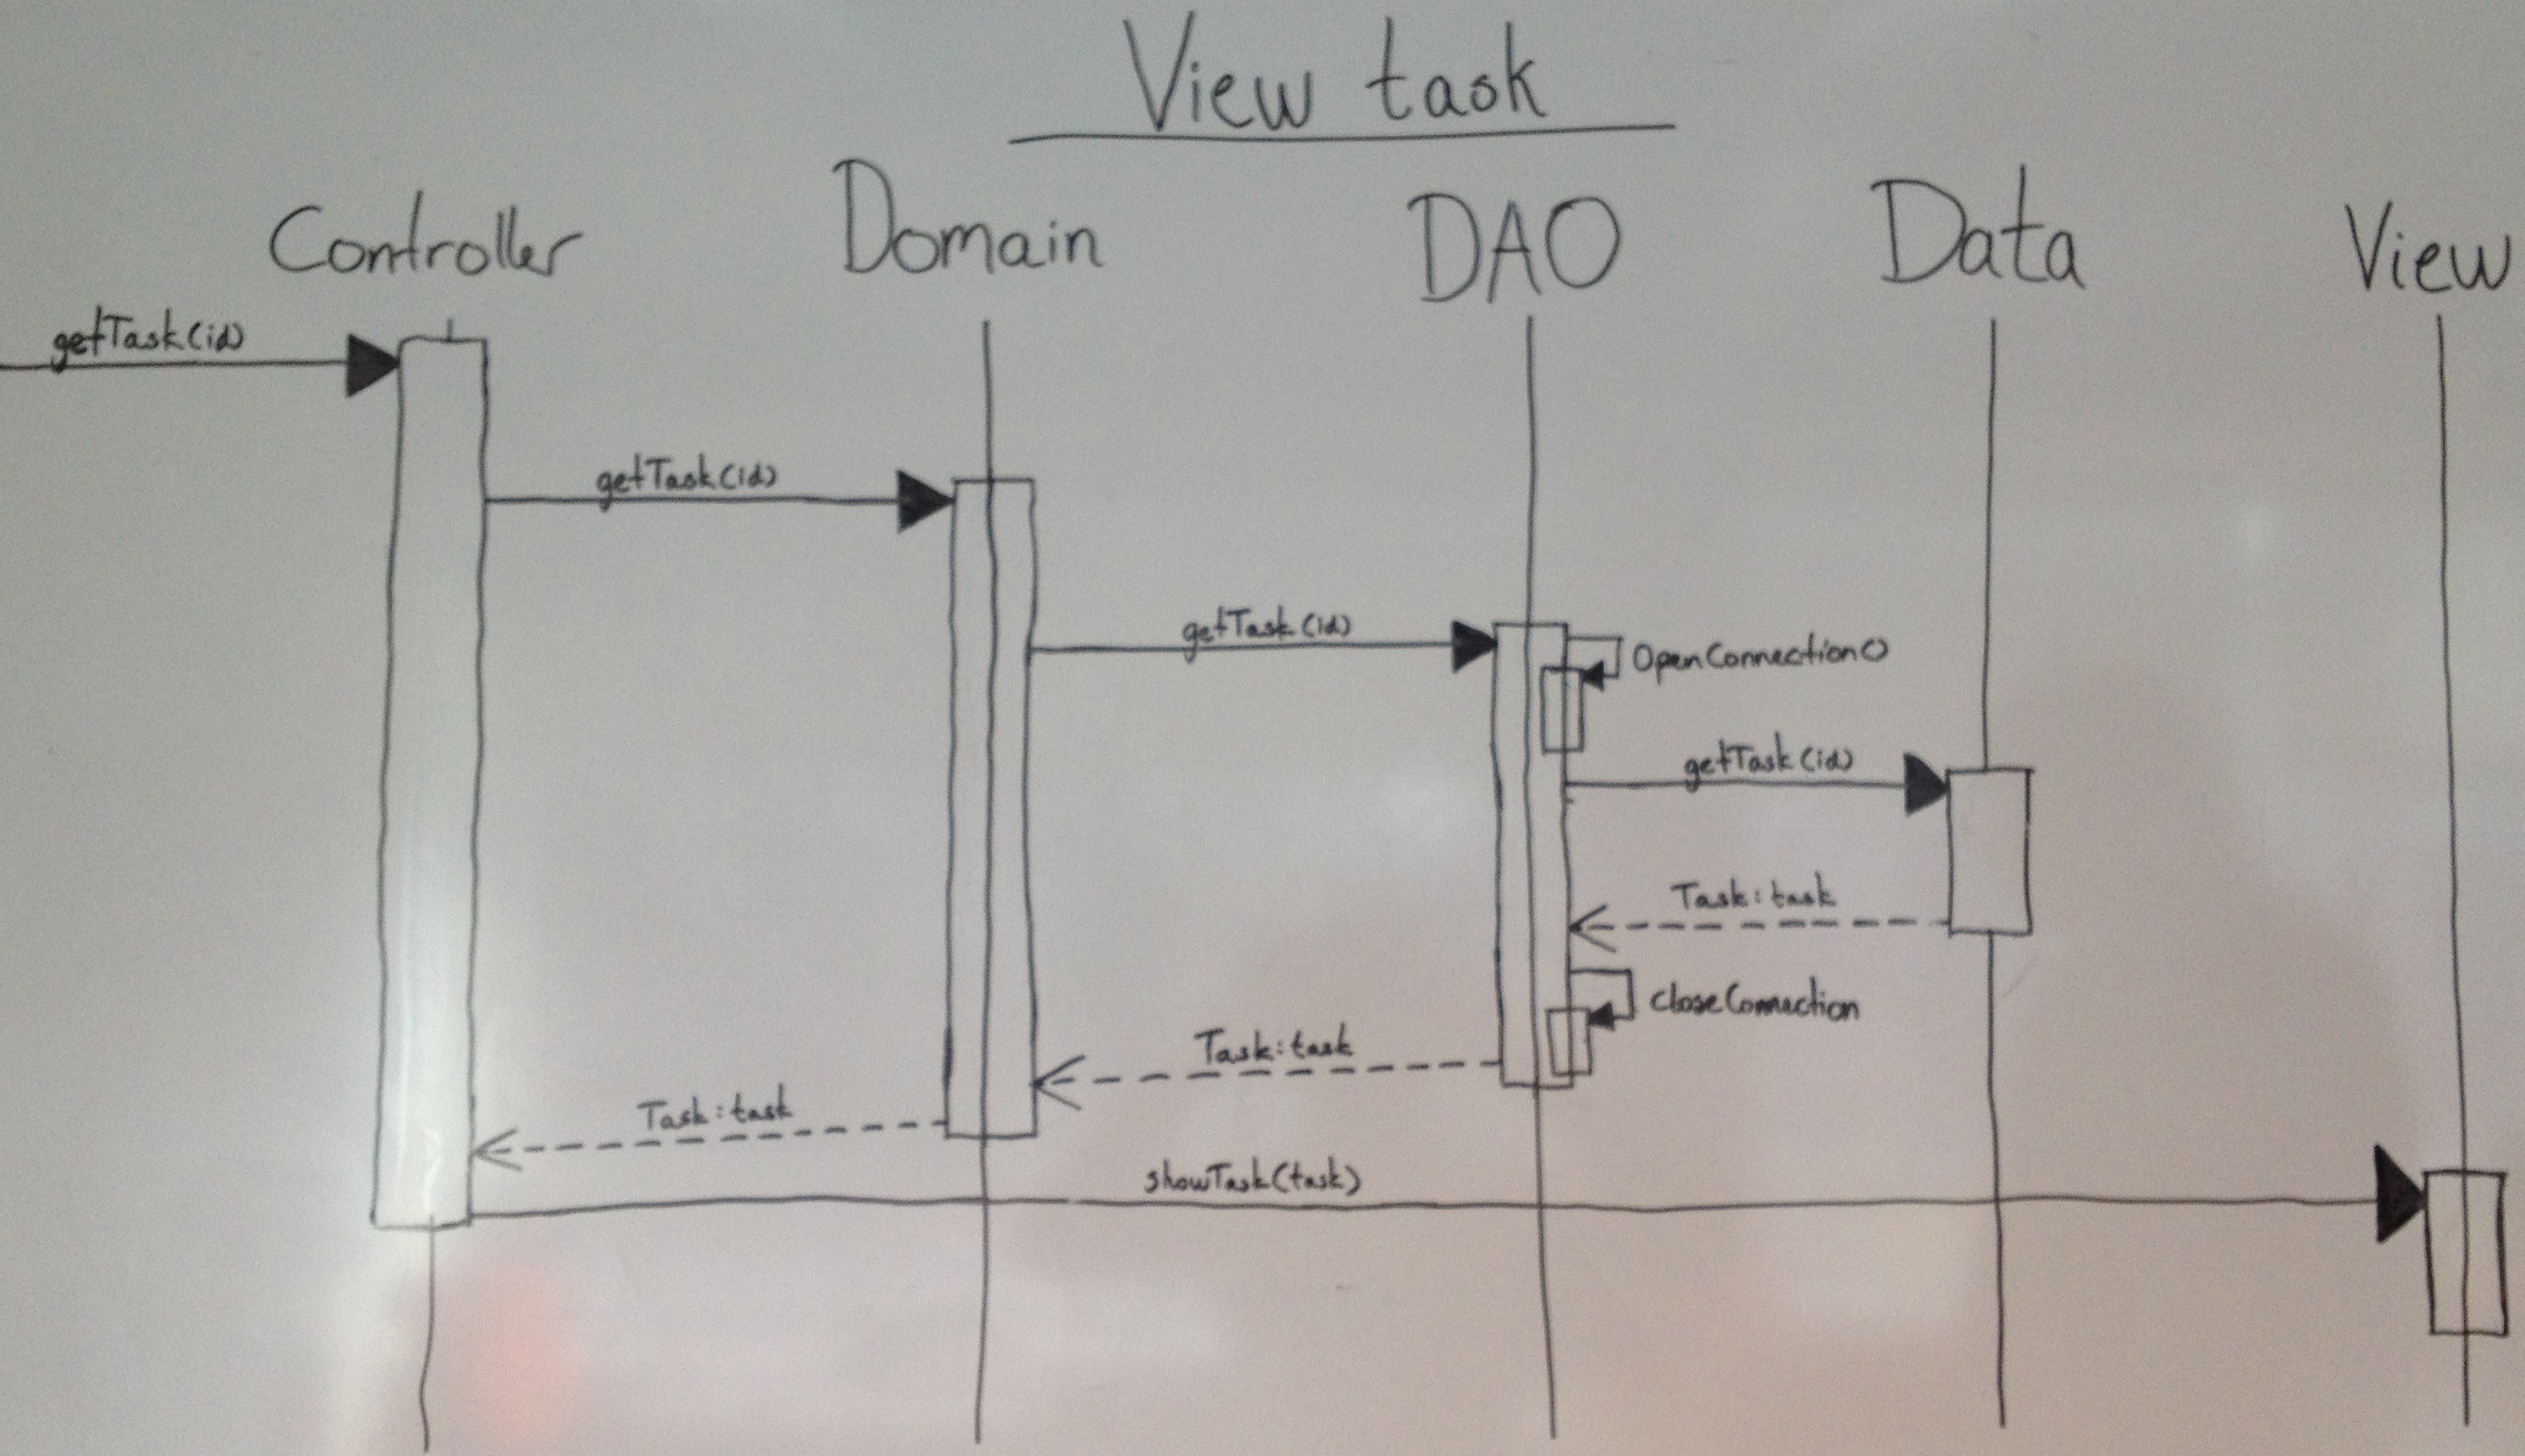 View task
Controller Domain DAO Data View
getTask(id)
getTask(id)
getTask(id)
OpenConnection()
getTask(id)
Task:task
closeConnection
Task:task
Task:task
showTask(task)